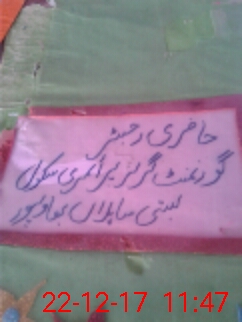 حاضری رجسٹر
گورنمنٹ گرلز پرائمری سکول
بستی سابلاں بہاولپور
22-12-17 11:47